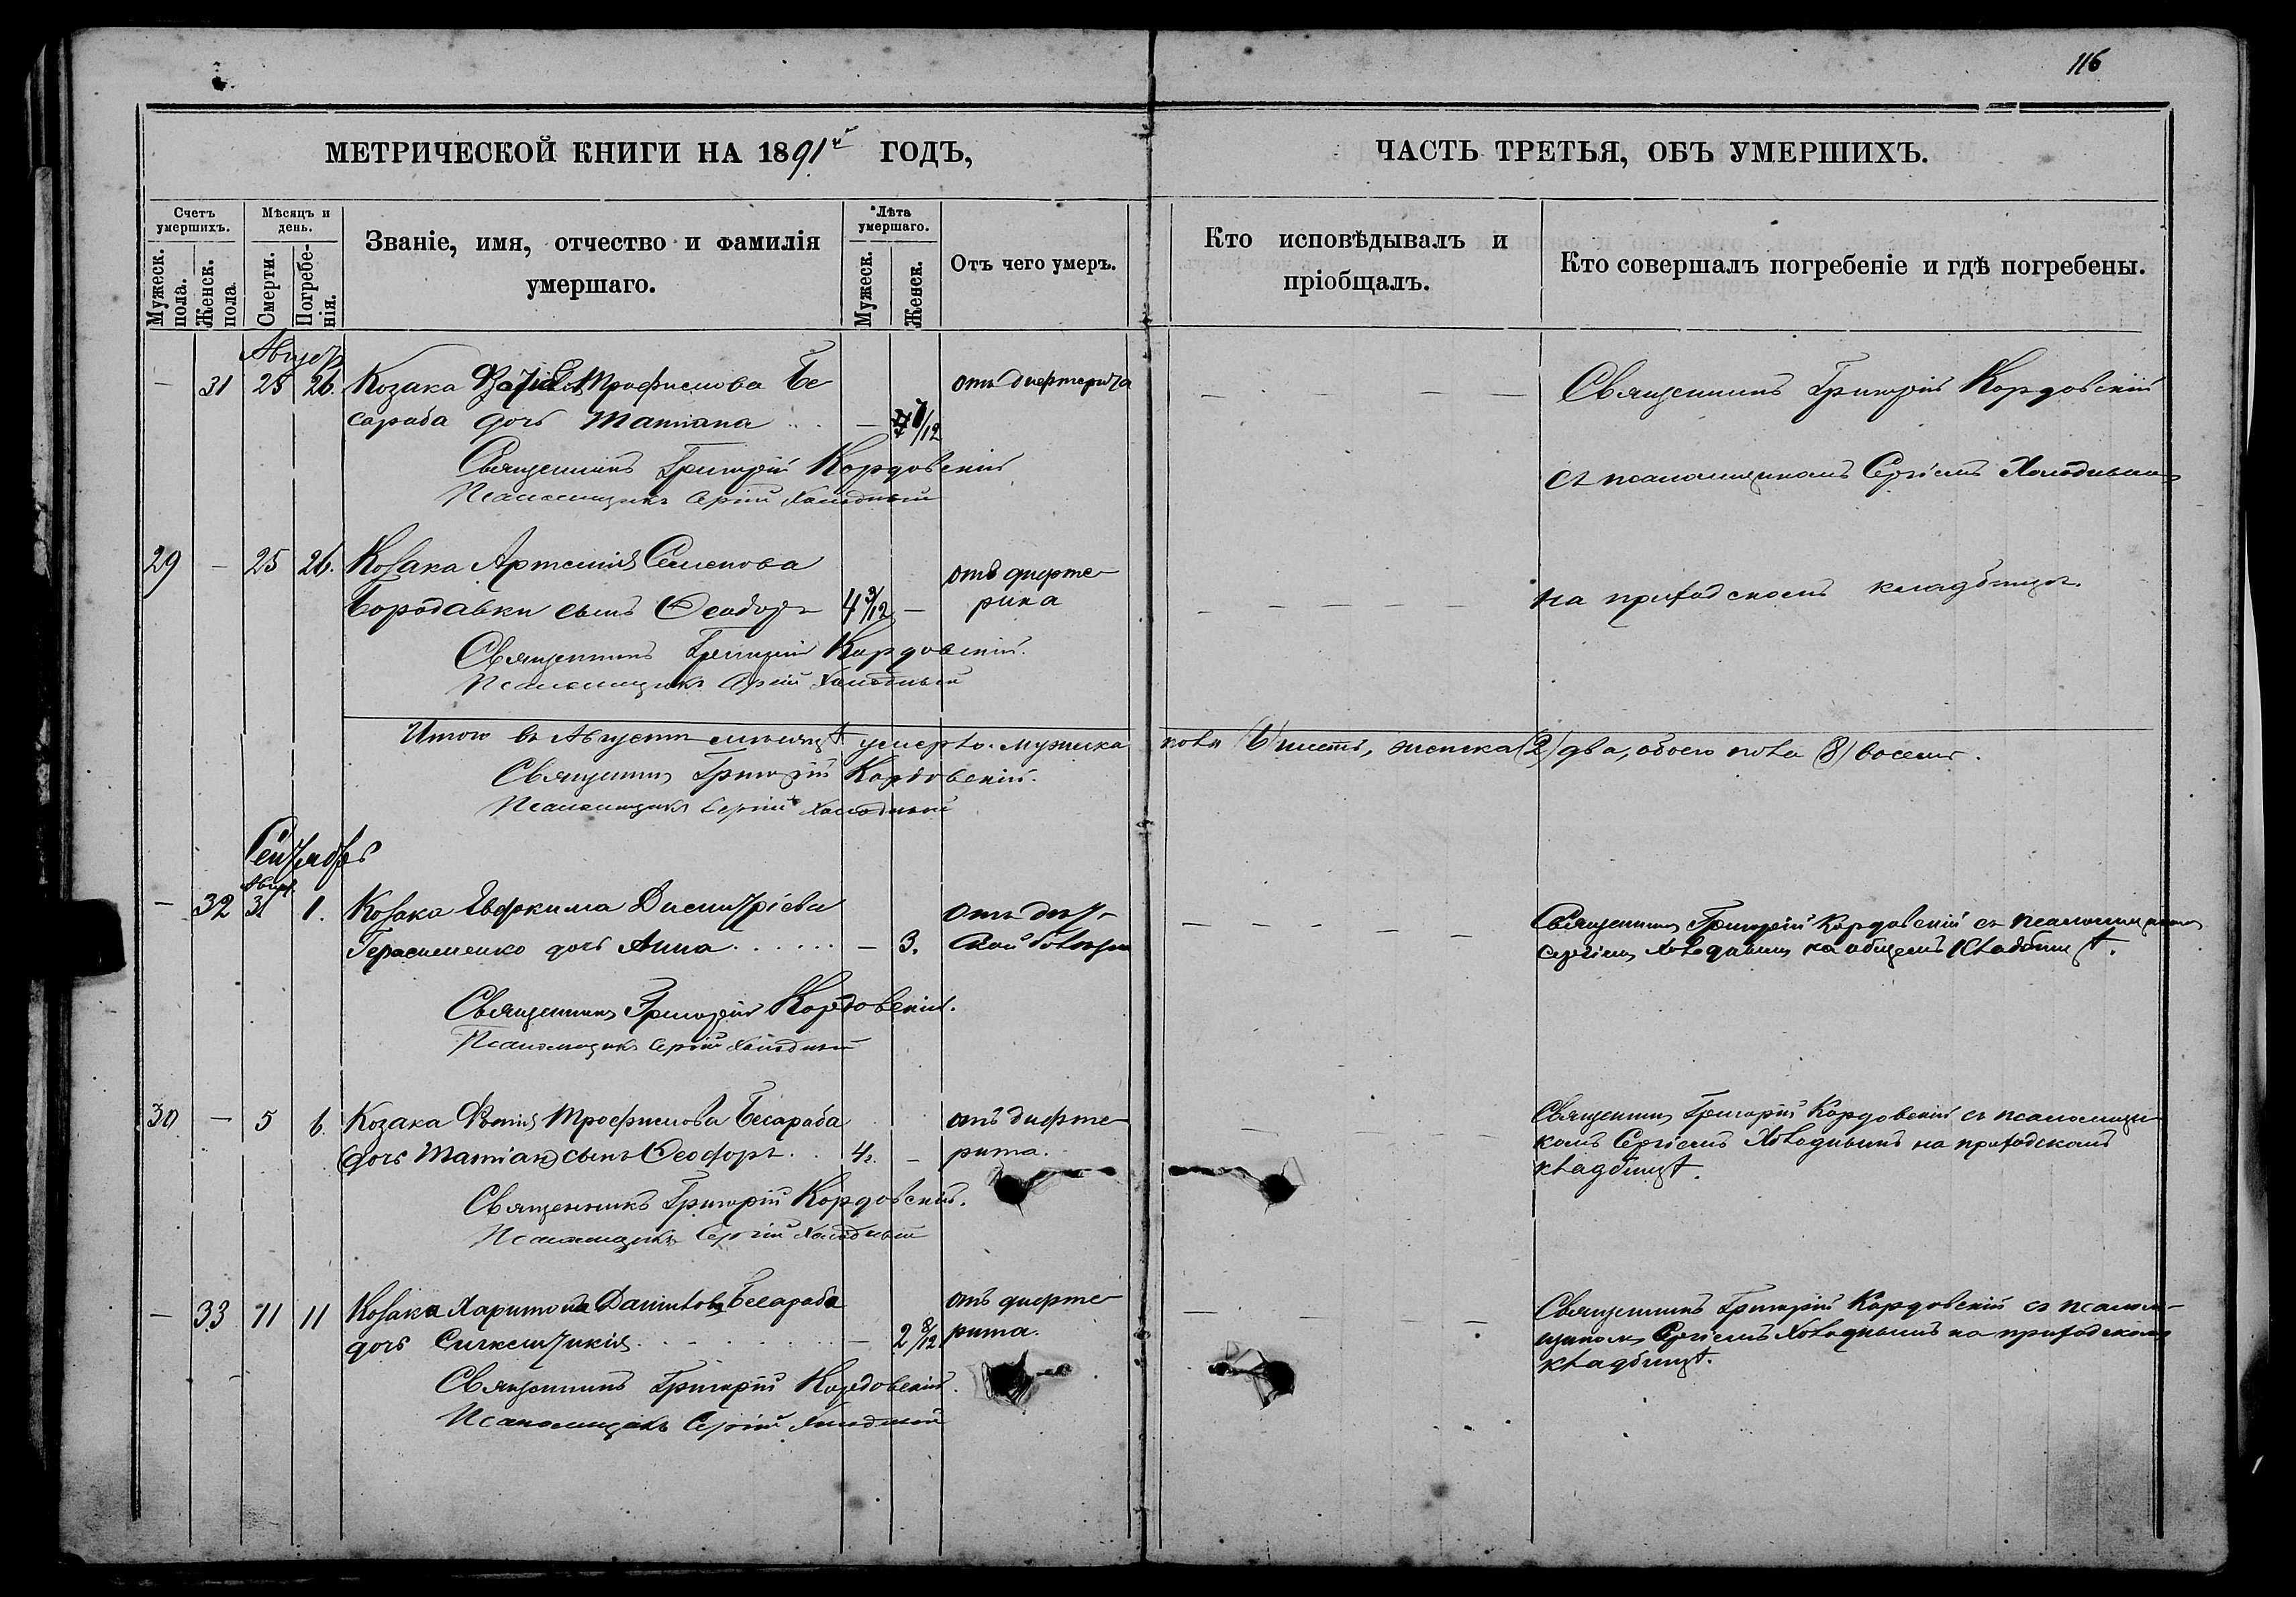 116
МЕТРИЧЕСКОЙ КНИГИ НА 1891й ГОДЪ,
ЧАСТЬ ТРЕТЬЯ, ОБЪ УМЕРШИХЪ.
Счетъ умершихъ.
Мужеск. пола.
Женск. пола
Мѣсяцъ и день.
Смерти.
Погребенія.
Званіе, имя, отчество и фамилія
умершаго.
Лѣта умершаго.
Мужеск.
Женск.
Отъ чего умеръ.
Кто исповѣдывалъ и
пріобщалъ.
Кто совершалъ погребеніе и гдѣ погребены.
Август
— 31 25 26. Козака Фотія Трофимова Бе отъ дифтерита Священникъ Григорій Кордовскій
сараба дочь Татіана — 7/12
Священникъ Григорій Кордовскій съ псаломщикомъ Сергіемъ Холоднымъ
Псаломщикъ Сергій Холодный
29 — 25 26. Козака Артемія Семенова отъ дифте-
Бородавки сынъ Ѳеодоръ 4 3/12 — рика на приходскомъ кладбищѣ.
Священникъ Григорій Кордовскій.
Псаломщикъ Сергій Холодный
Итого въ Августѣ мѣсяцѣ умерло: мужеска пола (6) шесть, женска (2) два, обоего пола (8) восемь.
Священникъ Григорій Кордовскій.
Псаломщикъ Сергій Холодный
Сентябрь
Авгус.
— 32 31 1. Козака Евфима Димитріева отъ Священникъ Григорій Кордовскій съ псаломщикомъ
Герасименко дочь Анна — 3. Сергіемъ Холоднымъ на общемъ кладбищѣ.
Священникъ Григорій Кордовскій.
Псаломщикъ Сергій Холодный
30 — 5 6 Козака Фотія Трофимова Бесараба отъ дифте- Священникъ Григорій Кордовскій съ псаломщи-
(дочь Татіан) сынъ Ѳеофоръ 4г. — рита. комъ Сергіемъ Холоднымъ на приходскомъ
кладбищѣ.
Священникъ Григорій Кордовскій.
Псаломщикъ Сергій Холодный
— 33 11 11 Козака Харитона Данилова Бесараба отъ дифте- Священникъ Григорій Кордовскій съ псалом-
дочь — 2 8/12 рита. щикомъ Сергіемъ Холоднымъ на приходскомъ
кладбищѣ.
Священникъ Григорій Кордовскій.
Псаломщикъ Сергій Холодный